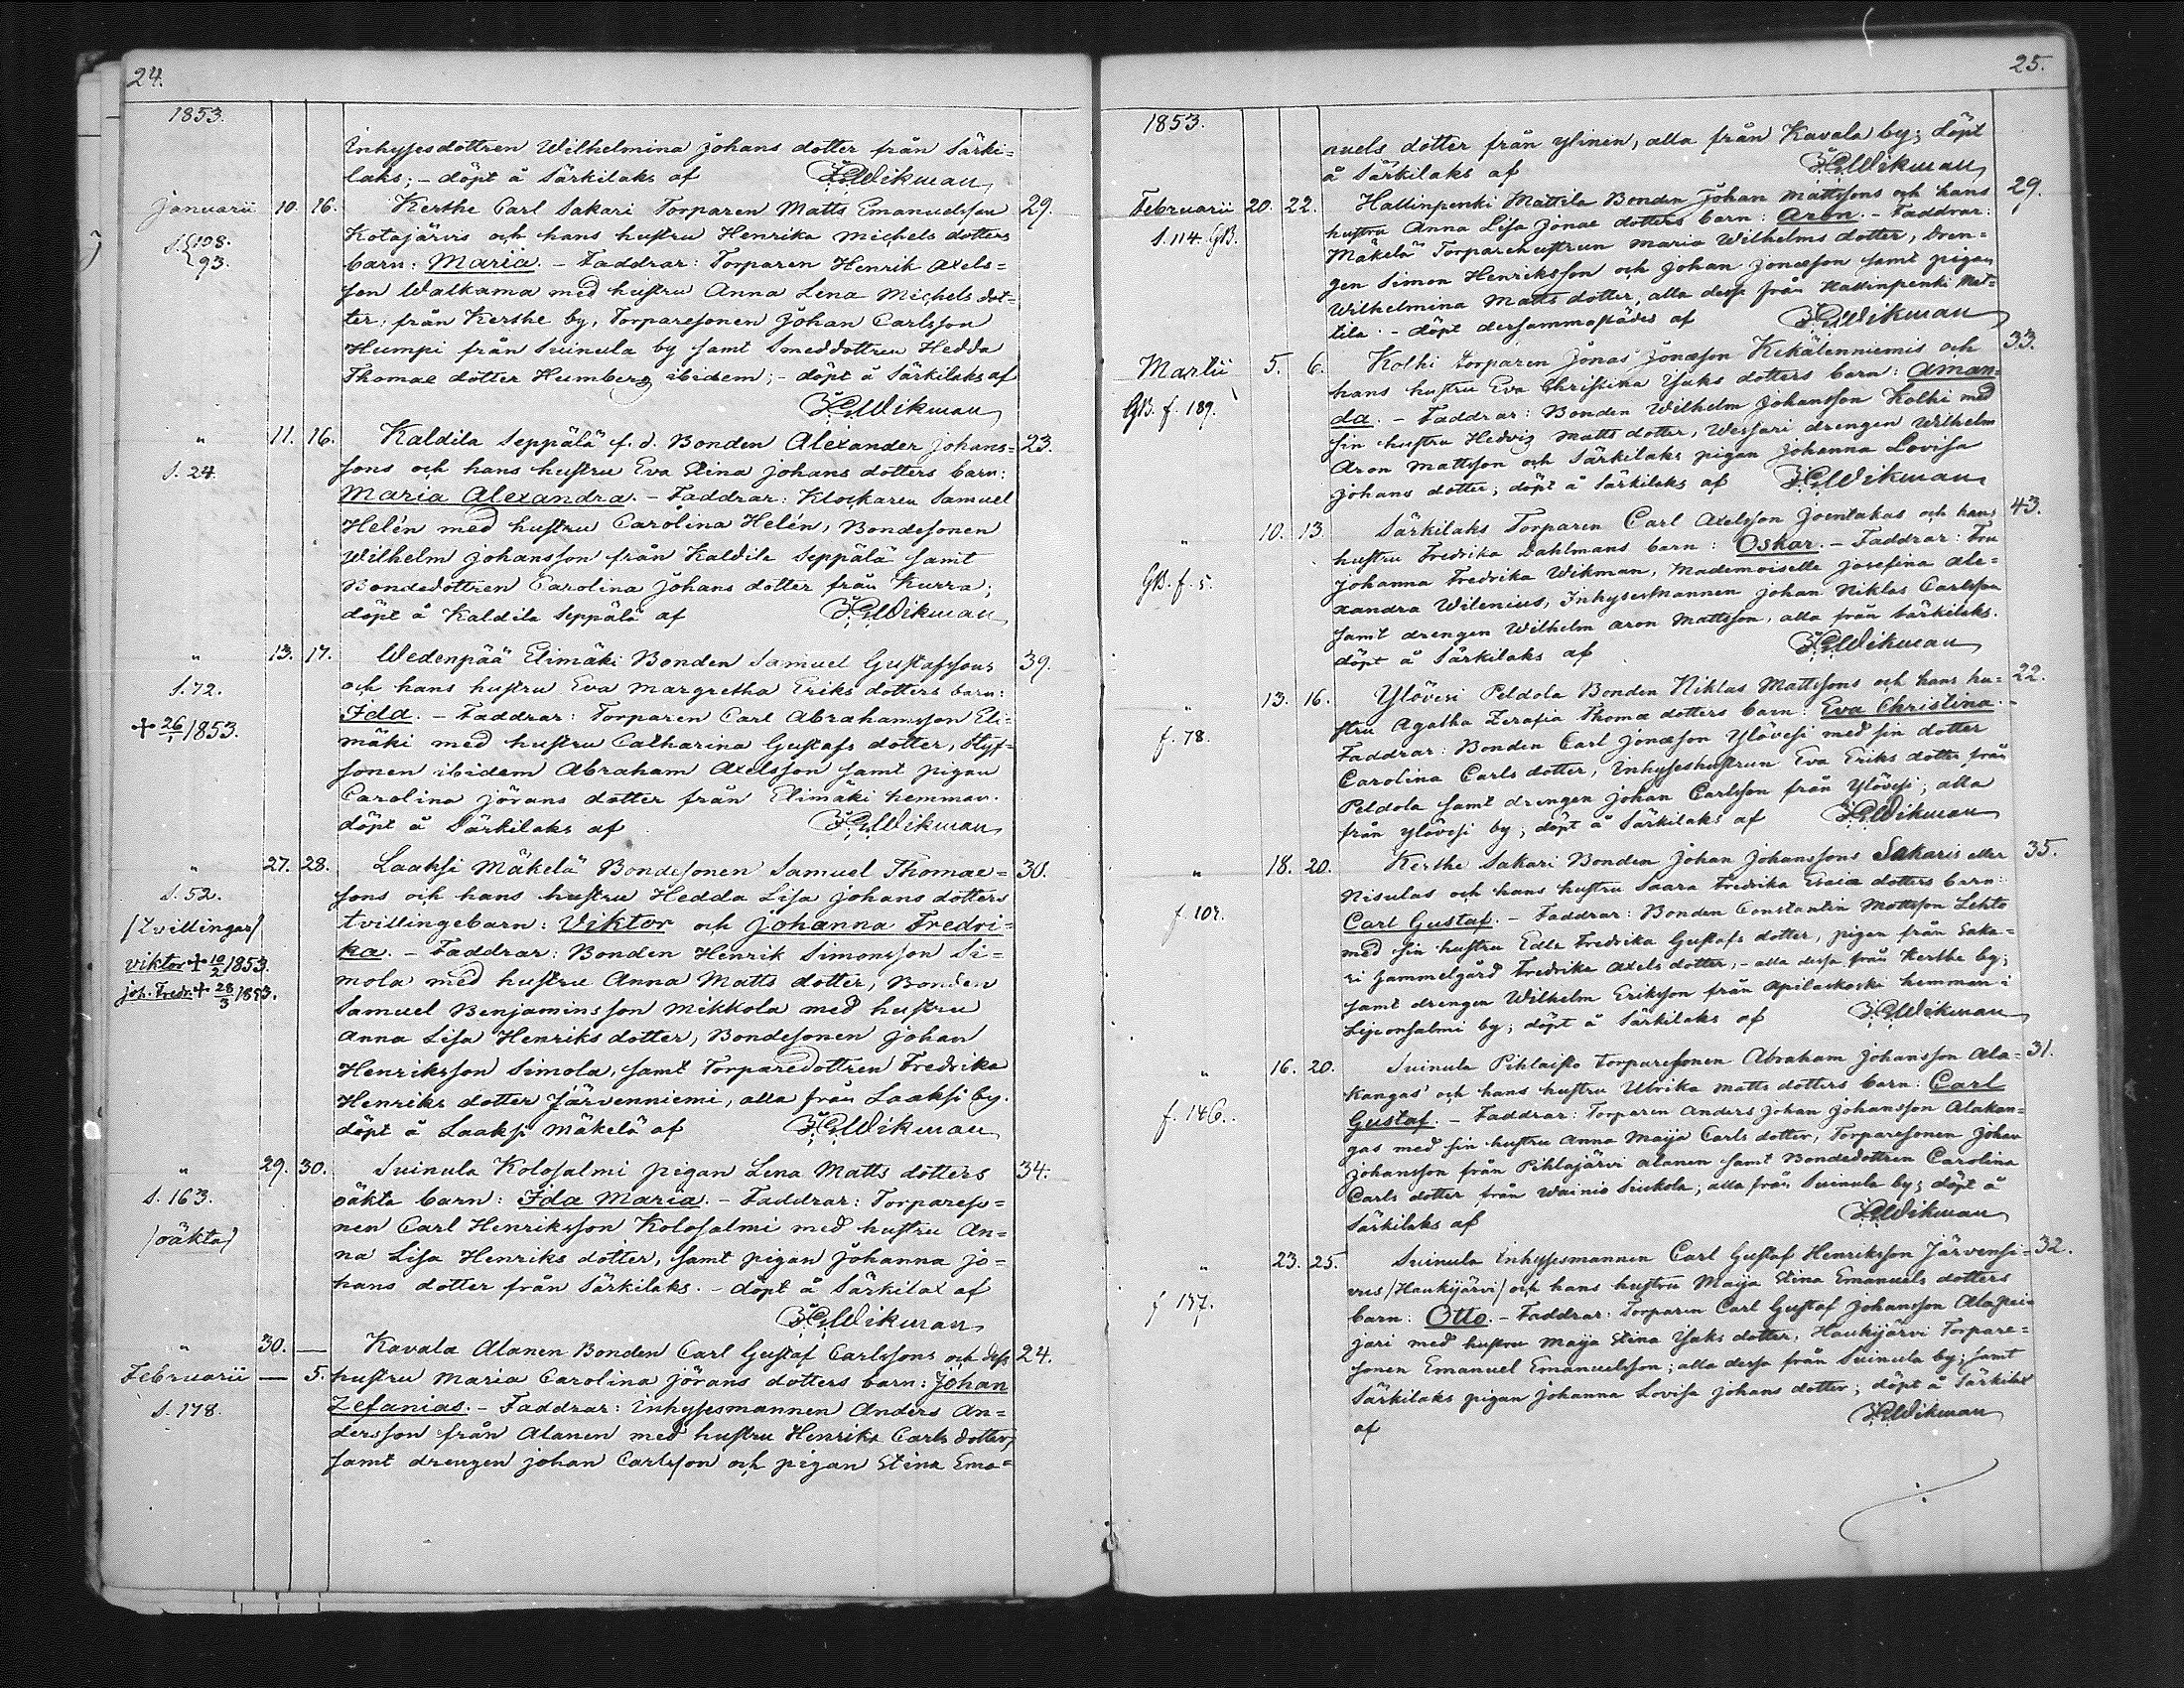 24.
1853.
Inhysesdottren Wilhelmina Johans dotter från Särki=
laks; - döpt å Särkilaks af Wikman
Januarii 10. 16. Kerthe Carl Sakari Torparen Matts Emanuelsson 29.
S. 108. Kotajärvis och hans hustru Henrika Michels dotters
93. barn: Maria. - Faddrar: Torparen Henrik Axels=
son Walkama med hustru Anna Lena Michels dot=
ter, från Kerthe by, Torparesonen Johan Carlsson
Humpi från Suinula by samt Smeddottren Hedda
Thomae dotter Humberg ibidem; - döpt å Särkilaks af
Wikman
" 11. 16. Kaldila Seppälä f. d. Bonden Alexander Johans= 23.
S. 24. sons och hans hustru Eva Stina Johans dotters barn:
Maria Alexandra. - Faddrar: Klockaren Samuel
Helén med hustru Carolina Helén, Bondesonen
Wilhelm Johansson från Kaldila Seppälä samt
Bondedottren Carolina Johans dotter från Kurra;
döpt å Kaldila Seppälä af Wikman
" 13. 17. Wedenpää Elimäki Bonden Samuel Gustafssons 39.
S. 72. och hans hustru Eva Margretha Eriks dotters barn:
Ida. - Faddrar: Torparen Carl Abrahamsson Eli=
+ 26/1 1853. mäki med hustru Catharina Gustafs dotter, Styf=
sonen ibidem Abraham Axelsson samt pigan
Carolina Jörans dotter från Elimäki hemman.
döpt å Särkilaks af Wikman
" 27. 28. Laaksi Mäkelä Bondesonen Samuel Thomae= 30.
S. 52. sons och hans hustru Hedda Lisa Johans dotters
/Tvillingar/ tvillingebarn: Viktor och Johanna Fredri=
ka. - Faddrar: Bonden Henrik Simonsson Si=
Viktor + 10/2 1853. mola med hustru Anna Matts dotter, Bonden
Joh. Fredr. + 28/3 1853. Samuel Benjaminsson Mikkola med hustru
Anna Lisa Henriks dotter, Bondesonen Johan
Henriksson Simola, samt Torparedottren Fredrika
Henriks dotter Järvenniemi, alla från Laaksi by.
döpt å Laaksi Mäkelä af Wikman
" 29. 30. Suinula Kolosalmi pigan Lena Matts dotters 34.
S. 163. oäkta barn: Ida Maria. - Faddrar: Torpareso=
/oäkta/ nen Carl Henriksson Kolosalmi med hustru An=
na Lisa Henriks dotter, samt pigan Johanna Jo=
hans dotter från Särkilaks. - döpt å Särkilax af
Wikman
" 30. — Kavala Alanen Bonden Carl Gustaf Carlssons och dess 24.
Februarii — 5. hustru Maria Carolina Jörans dotters barn: Johan
S. 178. Zefanias. - Faddrar: Inhysesmannen Anders An=
dersson från Alanen med hustru Henrika Carls dotter,
samt drengen Johan Carlsson och pigan Stina Ema=
25.
1853.
nuels dotter från Ylinen, alla från Kavala by; döpt
å Särkilaks af Wikman
Februarii 20. 22. Hallinpenki Mattila Bonden Johan Mattssons och hans 29.
S. 114. GB. hustru Anna Lisa Jonae dotters barn: Aron. - Faddrar:
Mäkelä Torparehustrun Maria Wilhelms dotter, Dren=
gen Simon Henriksson och Johan Jonæson samt pigan
Wilhelmina Matts dotter, alla dessa från Hallinpenki Mat=
tila. - döpt dersammastädes af Wikman
Martii 5. 6. Kolhi torparen Jonas Jonæson Kekälenniemis och 33.
GB. f. 189. hans hustru Eva Christina Isaks dotters barn: Aman=
da. - Faddrar: Bonden Wilhelm Johansson Kolhi med
sin hustru Hedvig Matts dotter, Wessari drengen Wilhelm
Aron Mattsson och Särkilaks pigan Johanna Lovisa
Johans dotter; döpt å Särkilaks af Wikman
" 10. 13. Särkilaks Torparen Carl Axelsson Joentakas och hans 43.
GB. f. 5. hustru Fredrika Dahlmans barn: Oskar. - Faddrar: Fru
Johanna Fredrika Wikman, Mademoiselle Josefina Ale=
xandra Wilenius, Inhysesmannen Johan Niklas Carlsson
samt drengen Wilhelm Aron Mattsson, alla från Särkilaks.
döpt å Särkilaks af Wikman
" 13. 16. Ylövesi Peldola Bonden Niklas Mattssons och hans hu= 22.
f. 78. stru Agatha Zerafia Thomæ dotters barn: Eva Christina. -
Faddrar: Bonden Carl Jonæson Ylövesi med sin dotter
Carolina Carls dotter, Inhyseshustrun Eva Eriks dotter från
Peldola samt drengen Johan Carlsson från Ylövesi; alla
från Ylövesi by; döpt å Särkilaks af Wikman
" 18. 20. Kerthe Sakari Bonden Johan Johanssons Sakaris eller 35.
Nisulas och hans hustru Saara Fredrika Esaiæ dotters barn:
f. 107. Carl Gustaf. - Faddrar: Bonden Constantin Mattsson Lehto
med sin hustru Edla Fredrika Gustafs dotter, pigan från Saka=
ri Gammelgård Fredrika Axels dotter, - alla dessa från Kerthe by;
samt drengen Wilhelm Eriksson från Apilaskoski hemman i
Liponsalmi by; döpt å Särkilaks af Wikman
" 16. 20. Suinula Pihlaisto torparesonen Abraham Johansson Ala= 31.
kangas' och hans hustru Ulrika Matts dotters barn: Carl
f. 146. Gustaf. - Faddrar: Torparen Anders Johan Johansson Alakan=
gas med sin hustru Anna Maija Carls dotter, Torparesonen Johan
Johansson från Pihlajärvi Alanen samt Bondedottren Carolina
Carls dotter från Wainio Siukola; alla från Suinula by; döpt å
Särkilaks af Wikman
" 23. 25. Suinula Inhysesmannen Carl Gustaf Henriksson Järvensi= 32.
vus /Haukijärvi/ och hans hustru Maija Stina Emanuels dotters
f 137. barn: Otto. - Faddrar: Torparen Carl Gustaf Johansson
jari med hustru Maija Stina Isaks dotter, Haukijärvi Torpare=
sonen Emanuel Emanuelsson; alla dessa från Suinula by; samt
Särkilaks pigan Johanna Lovisa Johans dotter; döpt å Särkilax
af Wikman